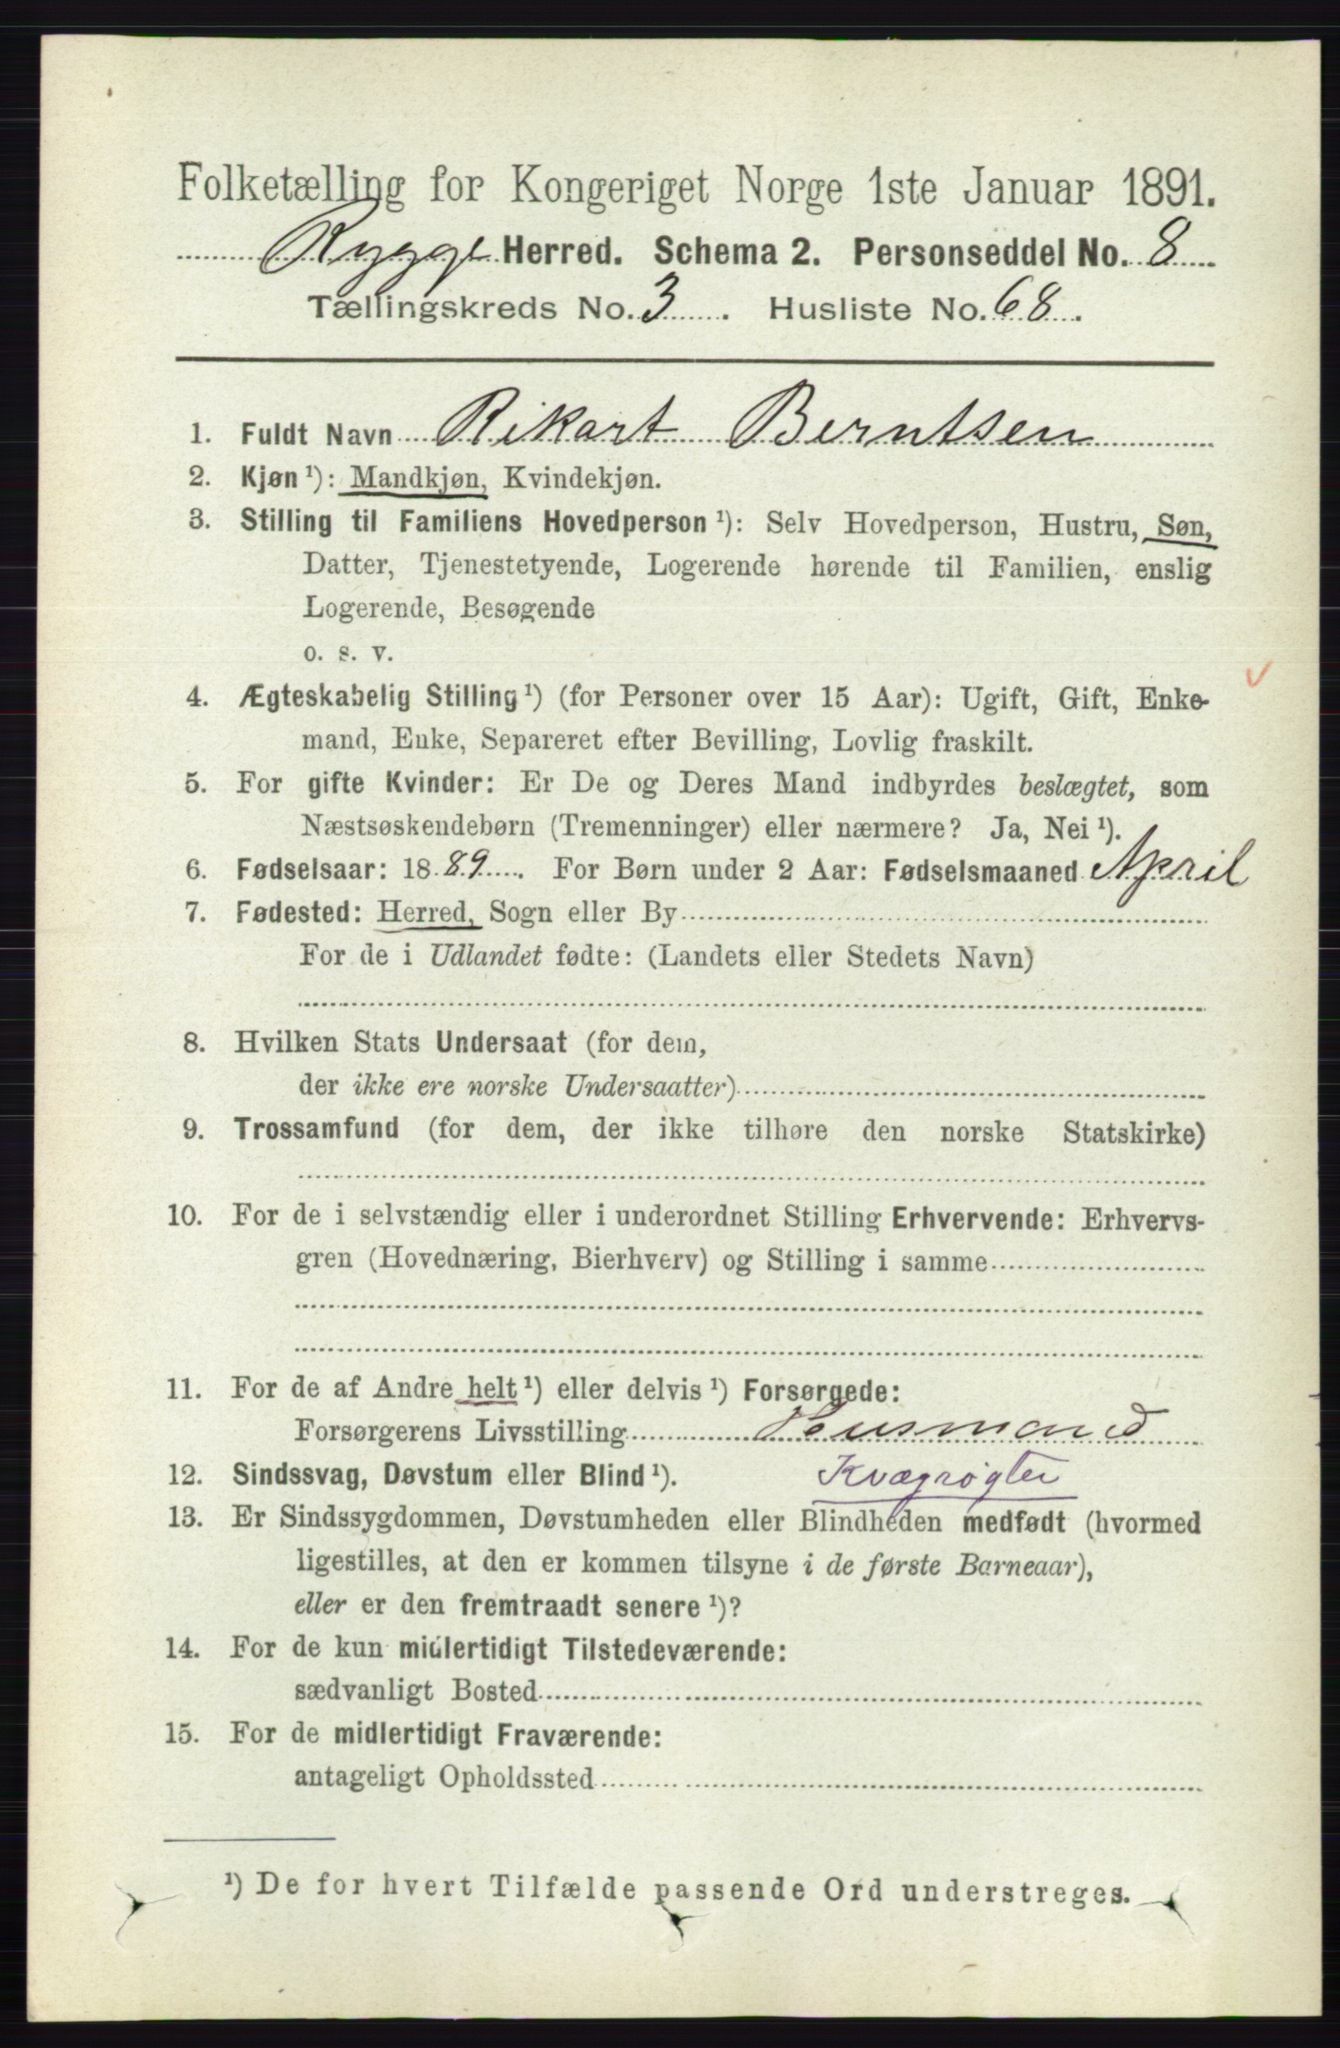 Folketælling for Kongeriget Norge 1ste Januar 1891.
Rygge Herred. Schema 2. Personseddel No. 8
Tællingskreds No. 3. Husliste No. 68.
1. Fuldt Navn Rikart Berntsen
2. Kjøn ¹): Mandkjøn, Kvindekjøn.
3. Stilling til Familiens Hovedperson ¹): Selv Hovedperson, Hustru, Søn,
Datter, Tjenestetyende, Logerende hørende til Familien, enslig
Logerende, Besøgende
o. s. v.
4. Ægteskabelig Stilling ¹) (for Personer over 15 Aar): Ugift, Gift, Enke-
mand, Enke, Separeret efter Bevilling, Lovlig fraskilt.
5. For gifte Kvinder: Er De og Deres Mand indbyrdes beslægtet, som
Næstsøskendebørn (Tremenninger) eller nærmere? Ja, Nei ¹).
6. Fødselsaar: 1889. For Børn under 2 Aar: Fødselsmaaned April
7. Fødested: Herred, Sogn eller By
For de i Udlandet fødte: (Landets eller Stedets Navn)
8. Hvilken Stats Undersaat (for dem,
der ikke ere norske Undersaatter)
9. Trossamfund (for dem, der ikke tilhøre den norske Statskirke)
10. For de i selvstændig eller i underordnet Stilling Erhvervende: Erhvervs-
gren (Hovednæring, Bierhverv) og Stilling i samme
11. For de af Andre helt ¹) eller delvis ¹) Forsørgede:
Forsørgerens Livsstilling Husmand
12. Sindssvag, Døvstum eller Blind ¹). Kvægrøgter
13. Er Sindssygdommen, Døvstumheden eller Blindheden medfødt (hvormed
ligestilles, at den er kommen tilsyne i de første Barneaar),
eller er den fremtraadt senere ¹)?
14. For de kun midlertidigt Tilstedeværende:
sædvanligt Bosted
15. For de midlertidigt Fraværende:
antageligt Opholdssted
¹) De for hvert Tilfælde passende Ord understreges.